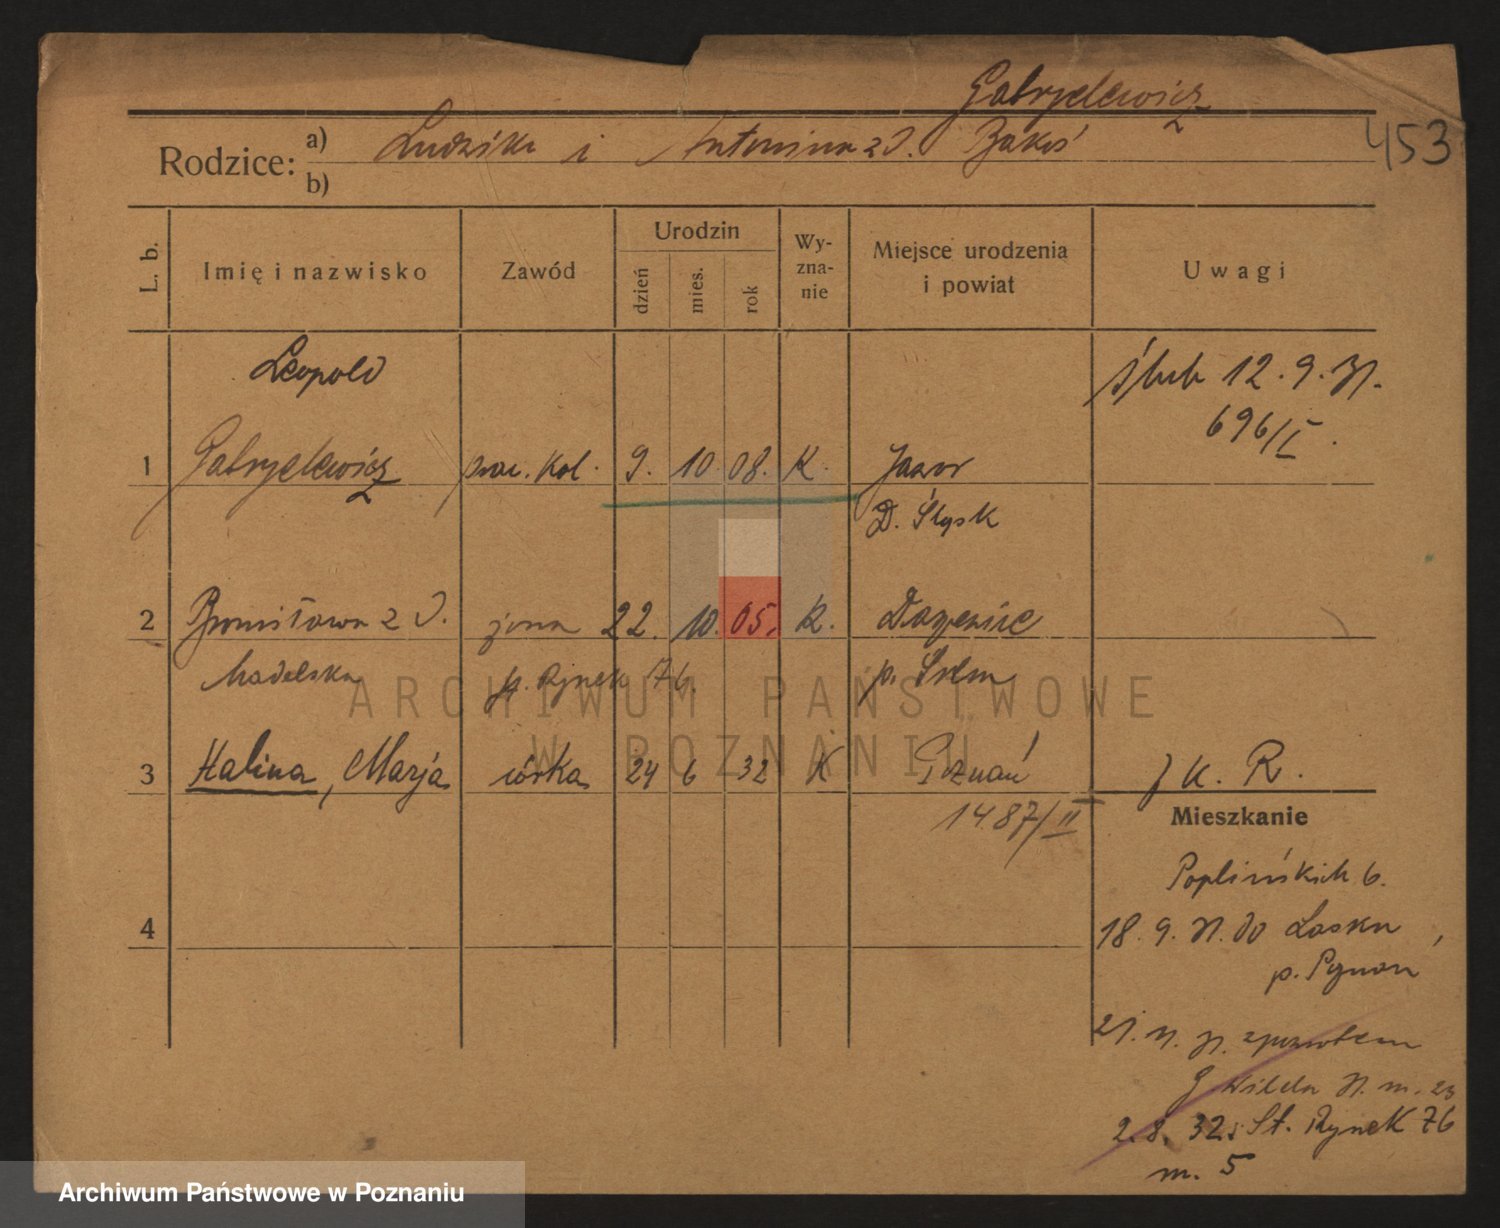 Gabryelewicz
453
Rodzice: a) Ludwika i Antonina z d. Bąkoś
b)
L. b. Imię i nazwisko Zawód Urodzin dzień mies. rok Wyzna-nie Miejsce urodzenia i powiat Uwagi
Leopold ślub 12. 9. 31.
696/II.
1 Gabryelewicz prac. kol. 9. 10. 08. K. Jawor
D. Śląsk
2 Bronisława z d. żona 22. 10. 05. K.
Madelska St. Rynek 76. p. Śrem
ARCHIWUM PAŃSTWOWE
W POZNANIU
3 Halina, Marja córka 24 6 32 K Poznań K. R.
1487/II
Mieszkanie
Poplińskich 6.
4
18. 9. 31. do Lasku,
p. Poznań
21. 11. 31. zpowrotem
G. Wilda 31. m. 23
2. 8. 32. St. Rynek 76
m. 5
Archiwum Państwowe w Poznaniu